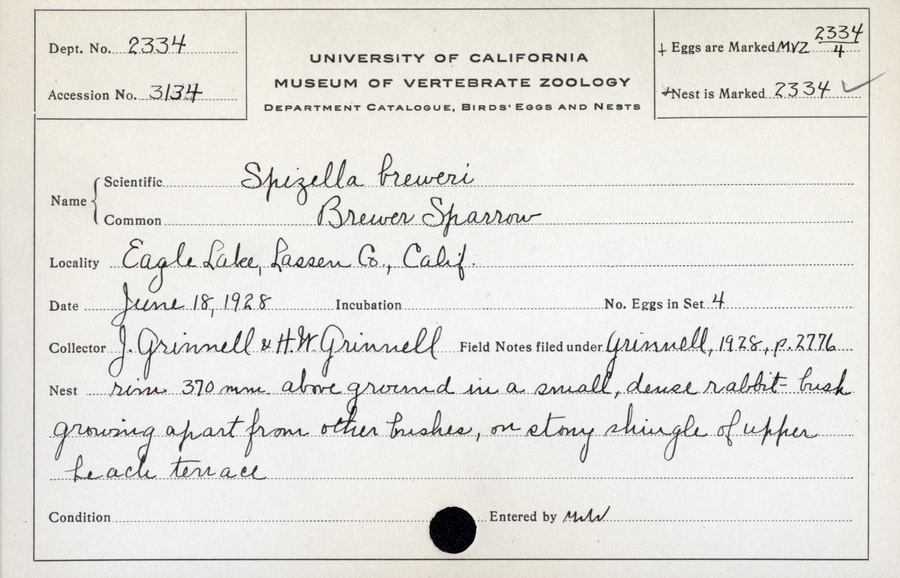 Dept. No. 2334
Accession No. 3134
UNIVERSITY OF CALIFORNIA
MUSEUM OF VERTEBRATE ZOOLOGY
DEPARTMENT CATALOGUE, BIRDS' EGGS AND NESTS
Eggs are Marked MVZ 2334/4
Nest is Marked 2334 ✓
Name { Scientific Spizella breweri
Common Brewer Sparrow
Locality Eagle Lake, Lassen Co., Calif.
Date June 18, 1928 Incubation No. Eggs in Set 4
Collector J. Grinnell & H.W. Grinnell Field Notes filed under Grinnell, 1928, p. 2776
Nest rim 370 mm above ground in a small, dense rabbit-bush
growing apart from other bushes, on stony shingle of upper
beach terrace
Condition Entered by